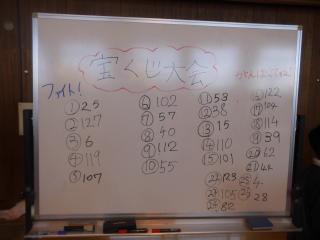 宝くじ大会
ファイト!
① 25
② 127
③ 6
④ 119
⑤ 107
⑥ 102
⑦ 57
⑧ 40
⑨ 112
⑩ 55
⑪ 53
⑫ 38
⑬ 15
⑭ 110
⑮ 101
⑯ 122
⑰ 104
⑱ 114
⑲ 39
⑳ 62
㉑
㉒ 123
105
82
4
28